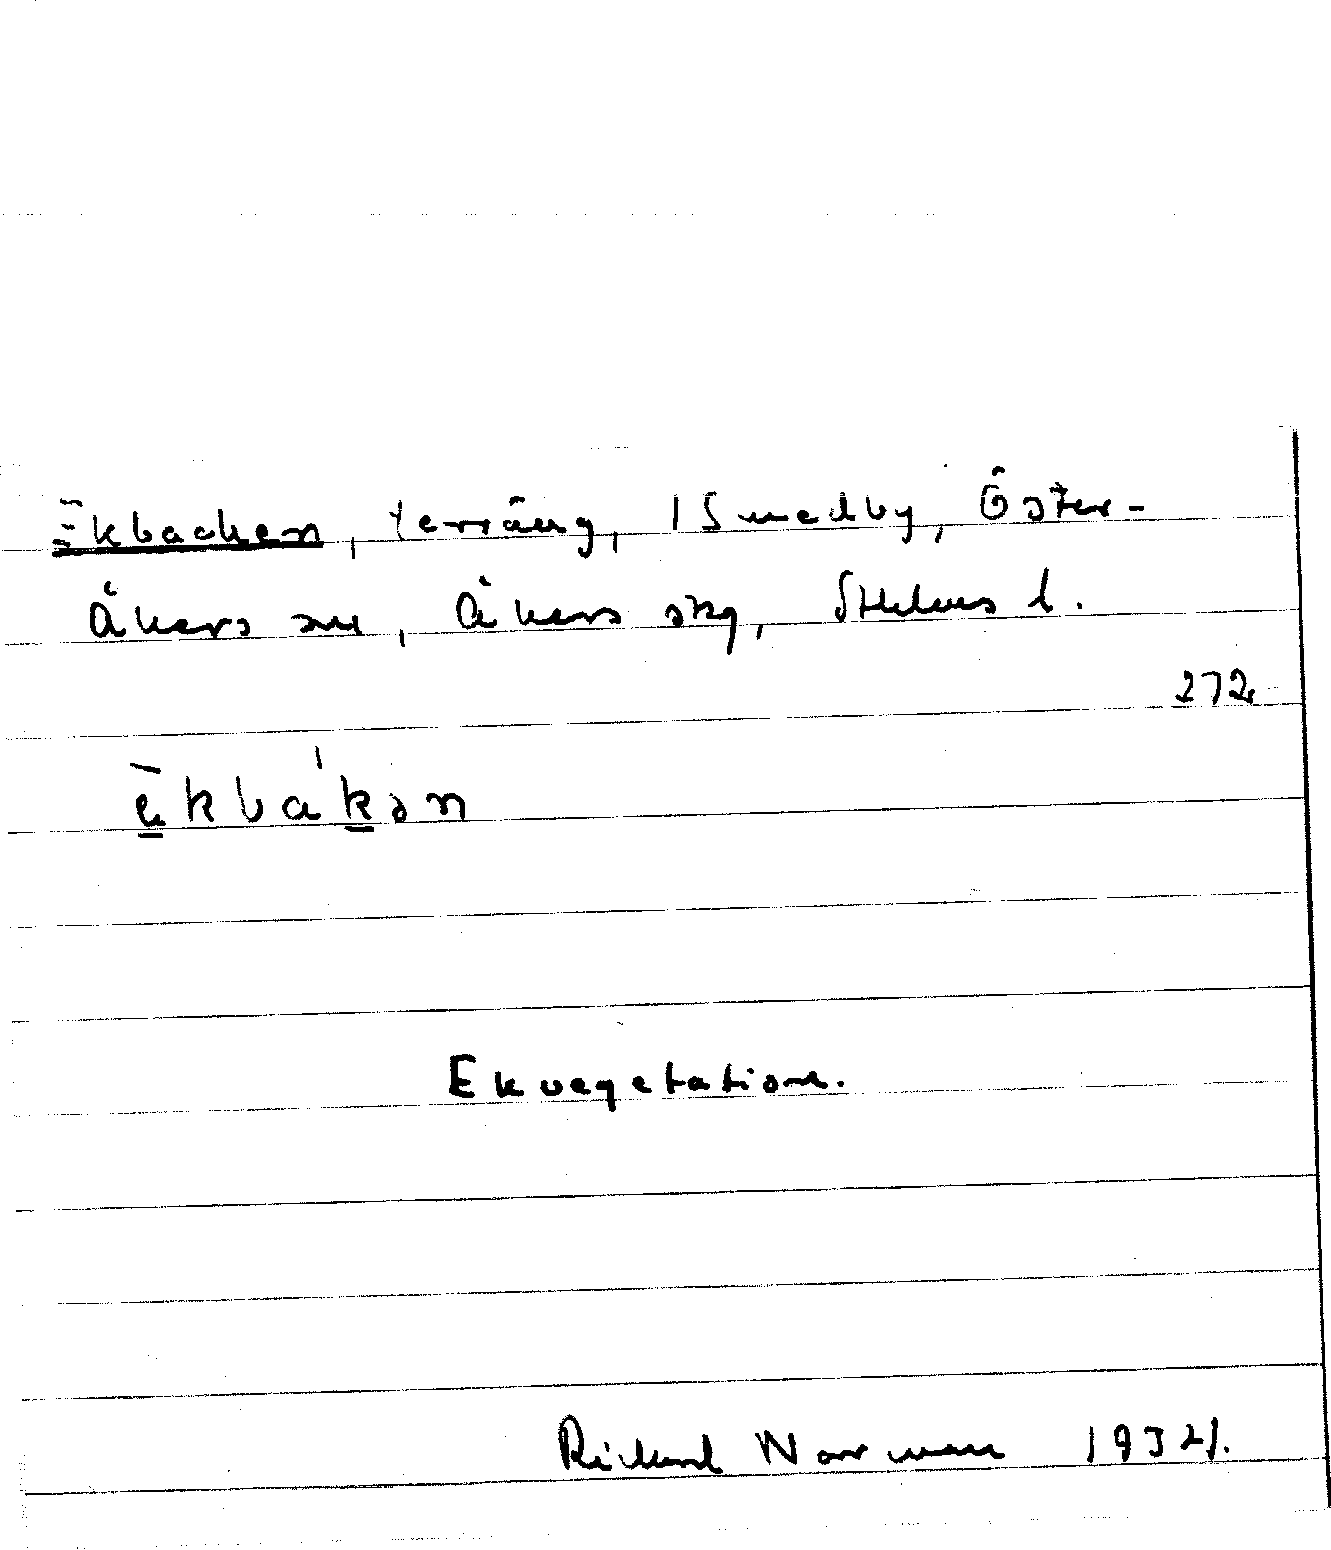 Ekbacken, terräng, 1 Smedby, Öster-
Åkers sn, Åkers skg, Sthlms l.
272
ēkba'kən
Ekvegetation.
Rickard Norman 1934.